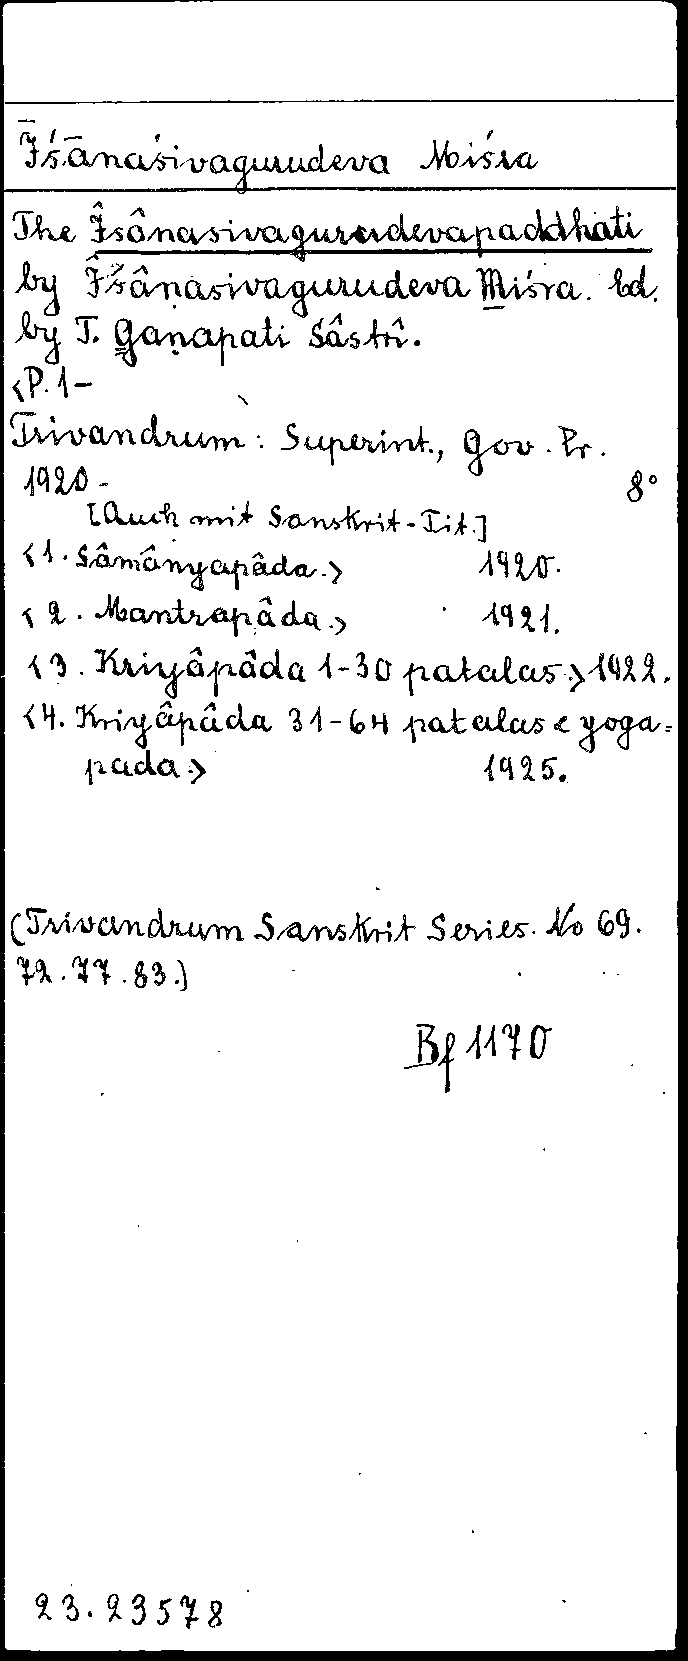 Īśānaśivagurudeva Miśra
The Îsânasivagurudevapaddhati
by Îśâṇasivagurudeva Miśra. Ed.
by T. Gaṇapati Sâstrî.
<P. 1-
Trivandrum: Superint., Gov. Pr.
1920- 8°
[Auch mit Sanskrit-Tit.]
<1. Sâmânyapâda.> 1920.
<2. Mantrapâda.> 1921.
<3. Kriyâpâda 1-30 patalas.> 1922.
<4. Kriyâpâda 31-64 patalas & yoga=
pada.> 1925.
(Trivandrum Sanskrit Series. No 69.
72.77.83.)
Bf 1170
23.23578